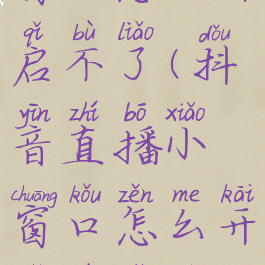 qǐ bù liǎo dǒu
启不了(抖
yīn zhí bō xiǎo
音直播小
chuāng kǒu zěn me kāi
窗口怎么开